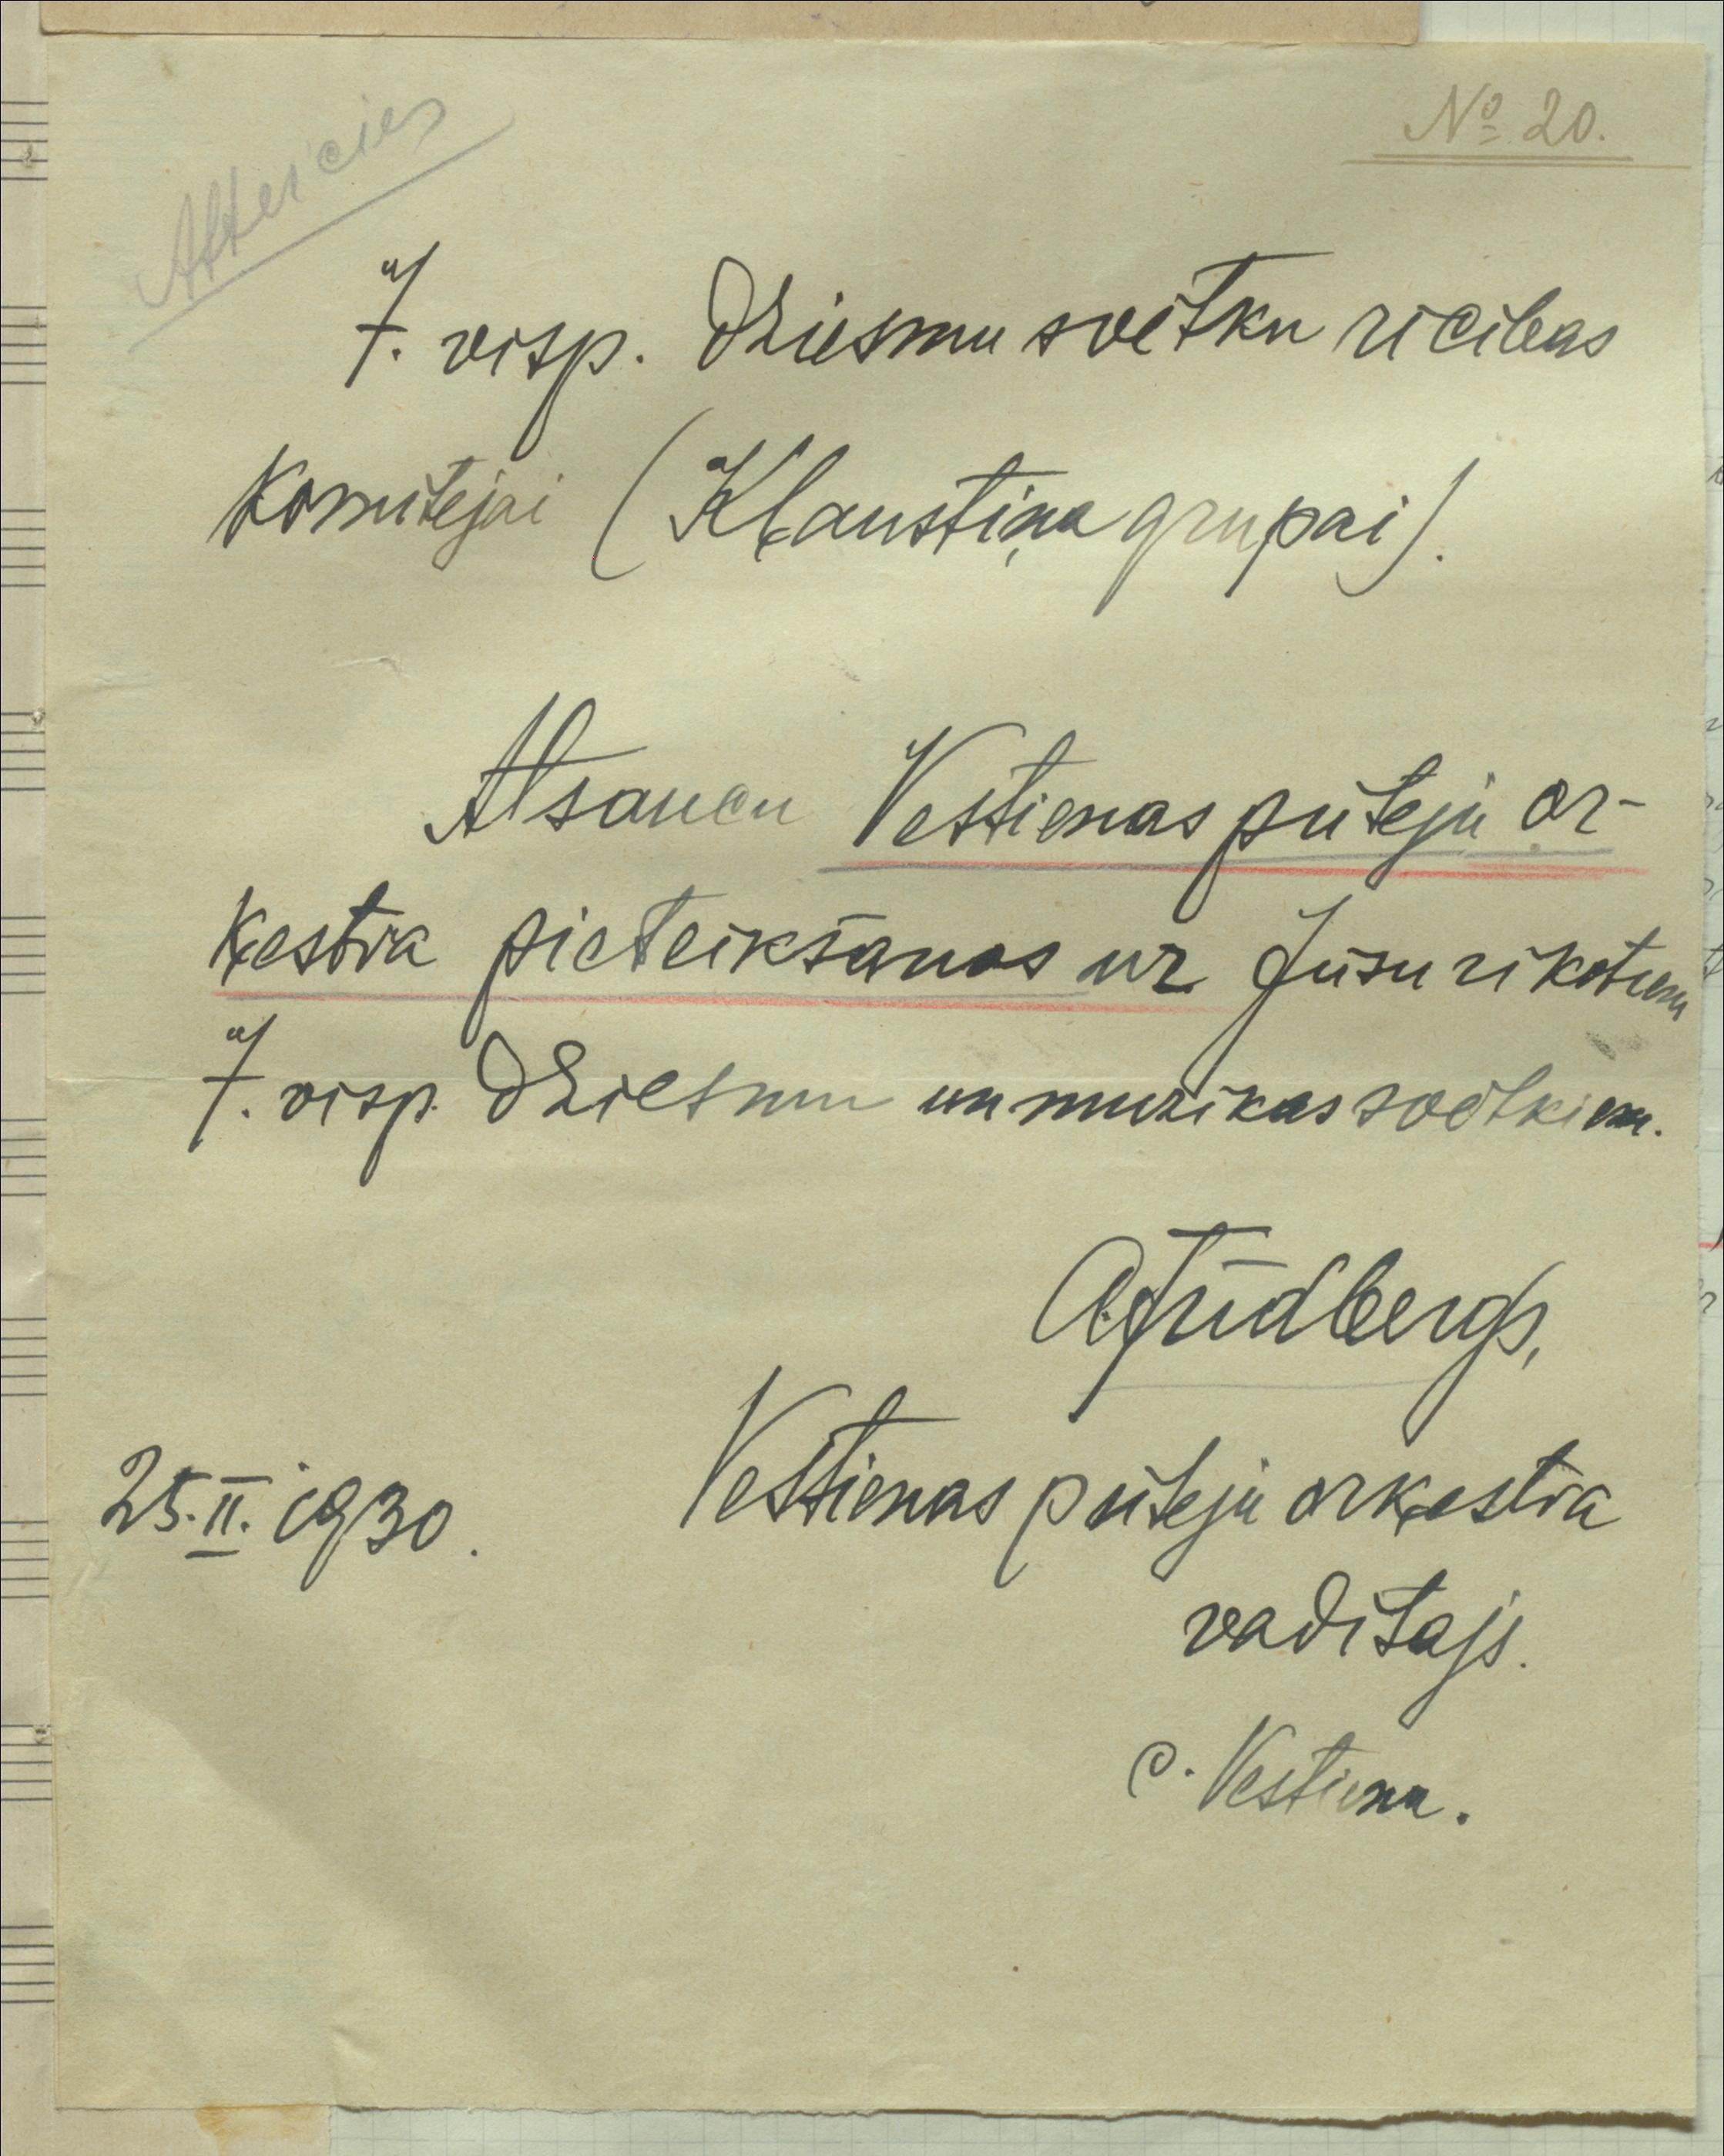 Atteicies
№ 20.
7. visp. Dziesmu svētku rīcības
komitejai (Klaustiņa grupai).
Atsaucu Vestienas pūtēju or-
kestra pieteikšanos uz Jūsu rīkotiem
7. visp. Dziesmu un muzikas svētkiem.
A. Jūdbergs,
25.II. 1930.
Vestienas pūtēju orkestra
vadītajs.
c. Vestiena.